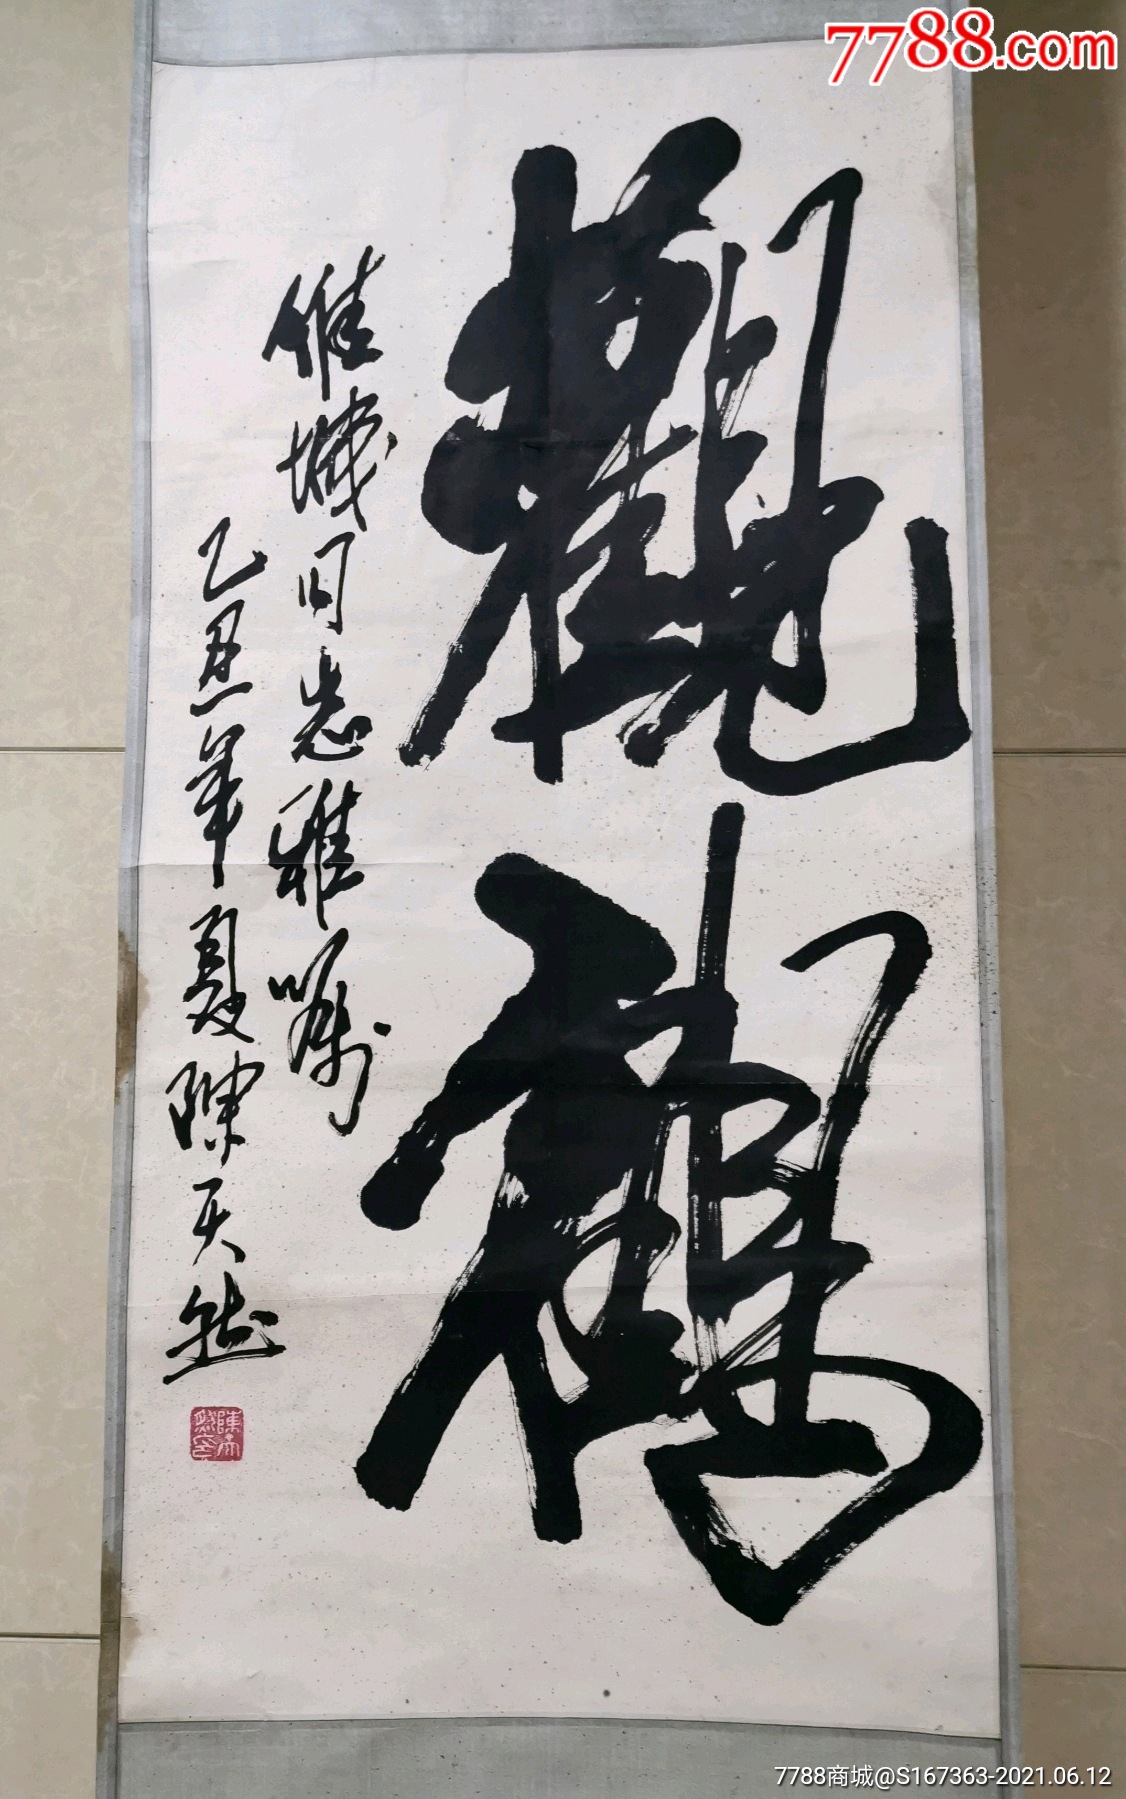 7788.com
觀鶴
維城同志雅嘱
乙丑年夏陳天然
7788商城@S167363-2021.06.12